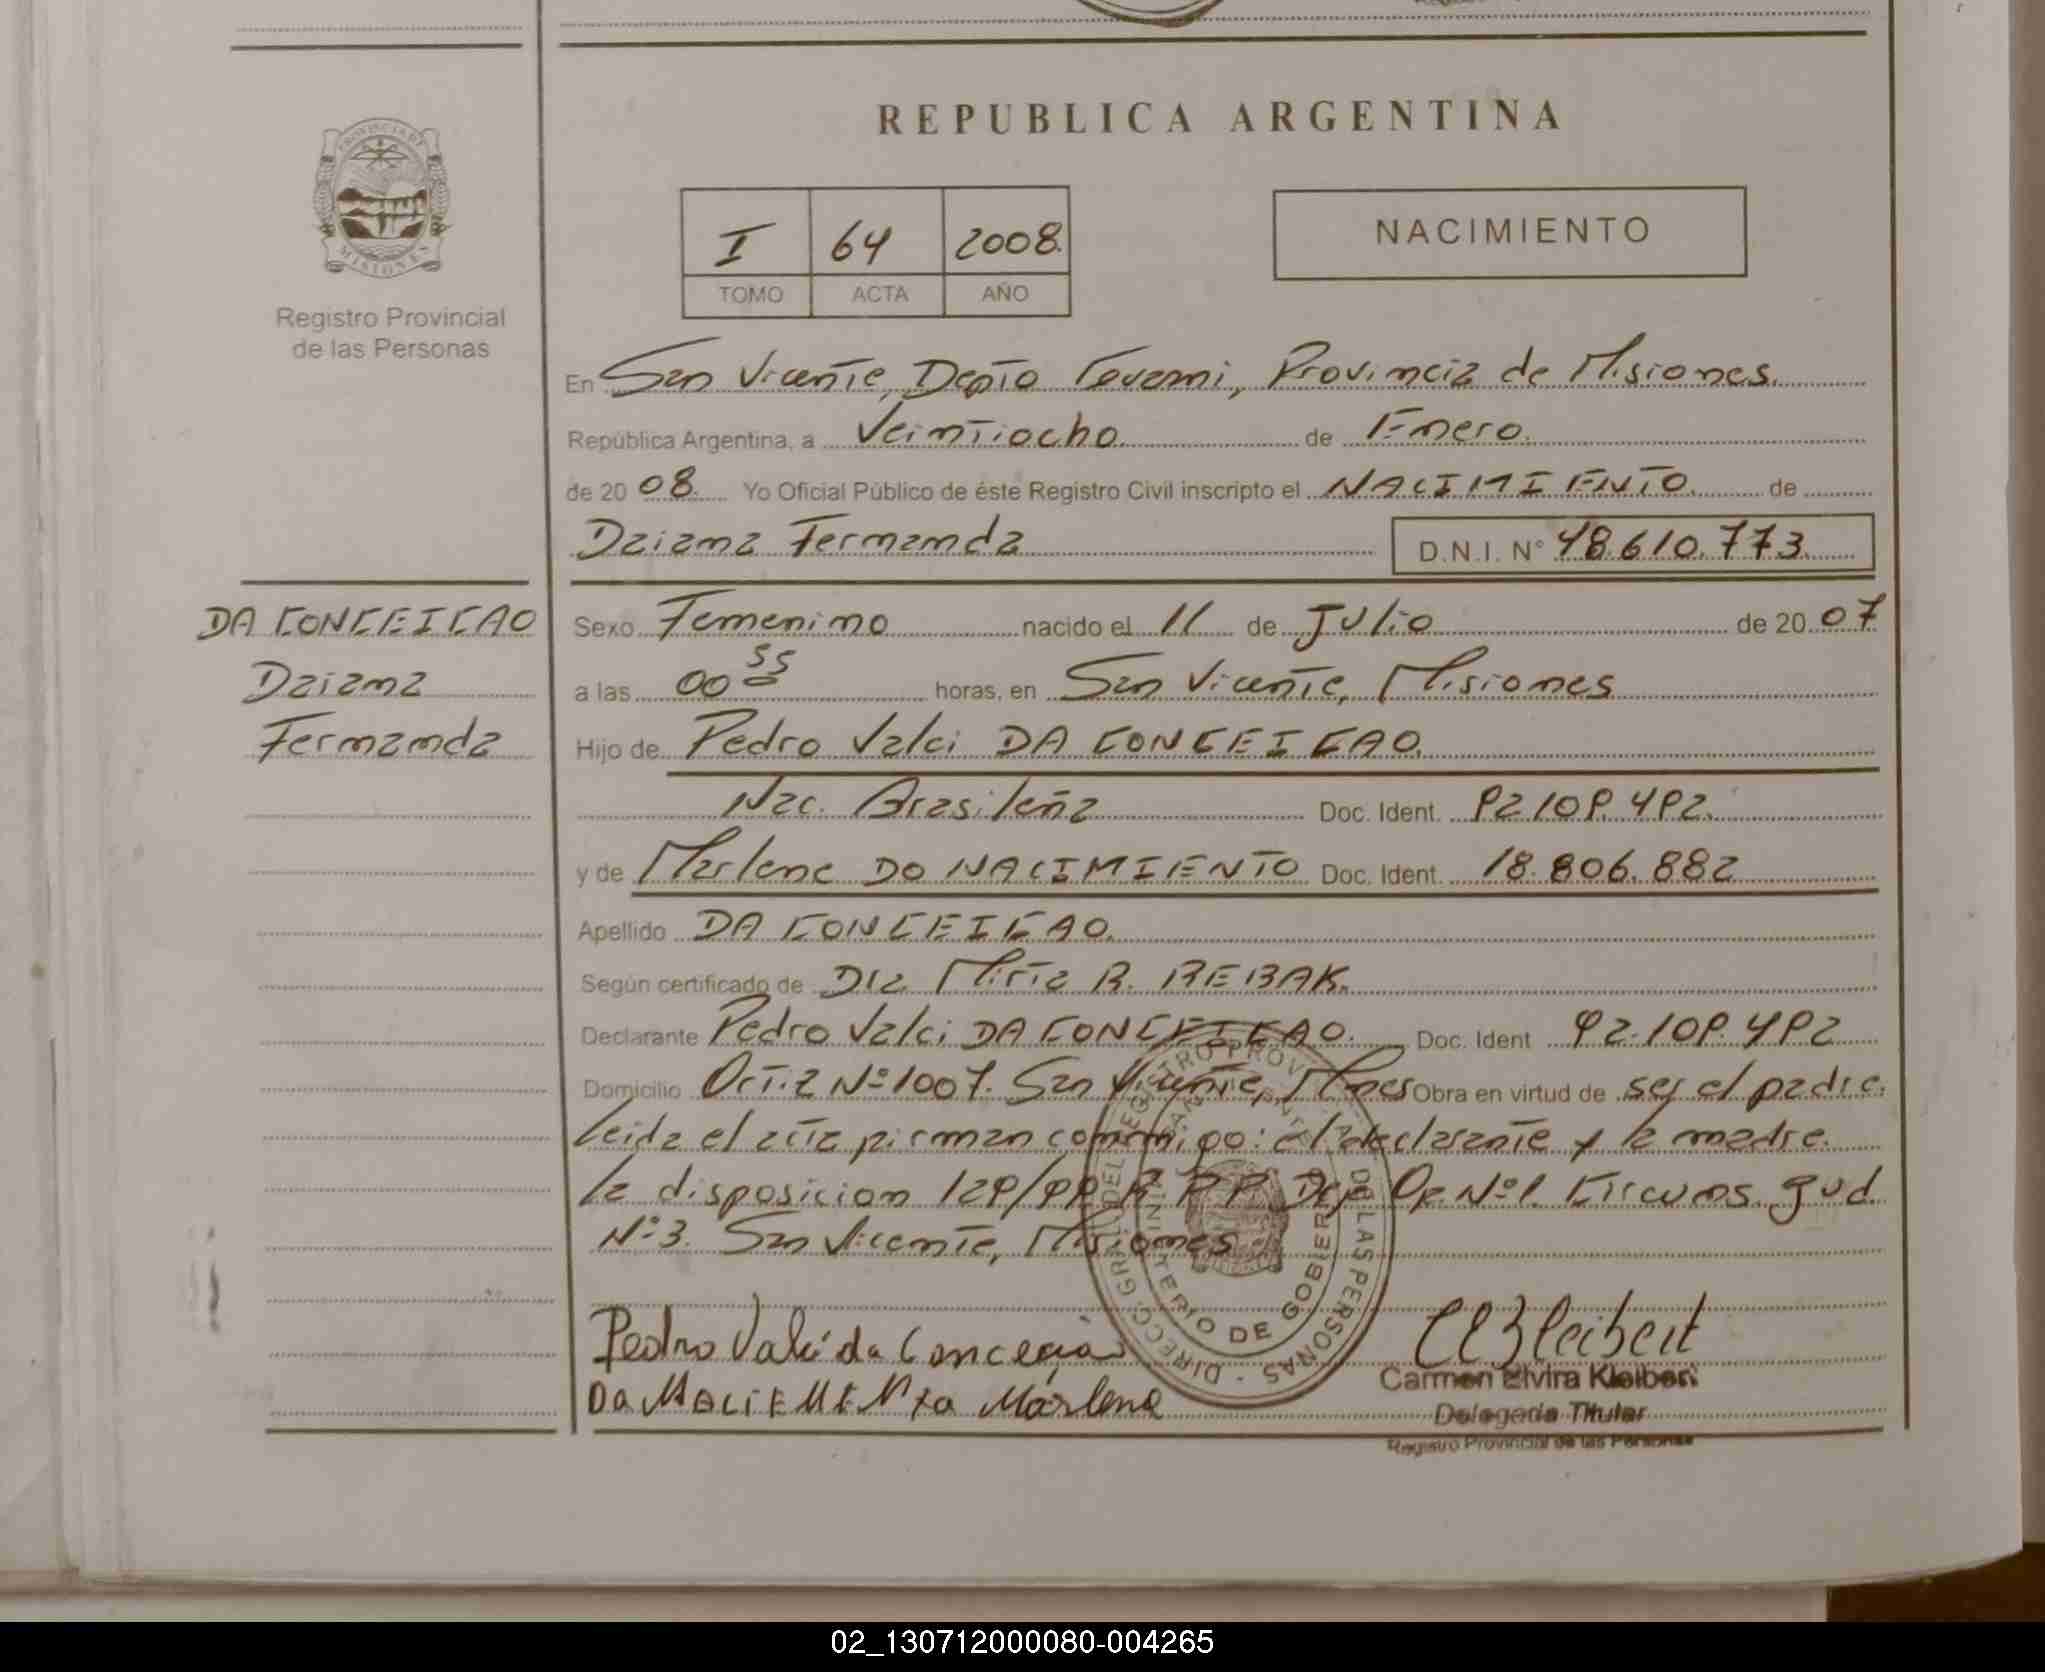 REPUBLICA ARGENTINA
PROVINCIA DE MISIONES
Registro Provincial
de las Personas
I 64 2008.
TOMO ACTA AÑO
NACIMIENTO
En San Vicente, Depto Guarani, Provincia de Misiones.
República Argentina, a Veintiocho. de Enero.
de 20 08. Yo Oficial Público de éste Registro Civil inscripto el NACIMIENTO. de
Daiana Fernanda D.N.I. N° 48.610.773.
DA CONCEICAO
Daiana
Fernanda
Sexo Femenino nacido el 11 de Julio de 20 07
a las 00 55 horas, en San Vicente, Misiones
Hijo de Pedro Valci DA CONCEICAO.
Nac. Brasileña Doc. Ident. 92109.492.
y de Marlene DO NACIMIENTO Doc. Ident. 18.806.882
Apellido DA CONCEICAO.
Según certificado de Dra Mirta R. REBAK.
Declarante Pedro Valci DA CONCEICAO. Doc. Ident 92.109.492
Domicilio Ortiz Nº 1007. San Vicente, Mnes Obra en virtud de ser el padre.
Leida el acta firman conmigo: el declarante y la madre.
la disposicion 129/99 R.P.P. Dep. Op. Nº1. Circuns. Jud.
Nº 3. San Vicente, Misiones.
DIRECC. GRAL. DEL REGISTRO PROVINCIAL DE LAS PERSONAS
MINISTERIO DE GOBIERNO
SAN VICENTE
Pedro Valci da Conceição
Da Maciemento Marlene
Carmen Elvira Kleibert
Delegada Titular
Registro Provincial de las Personas
02_130712000080-004265